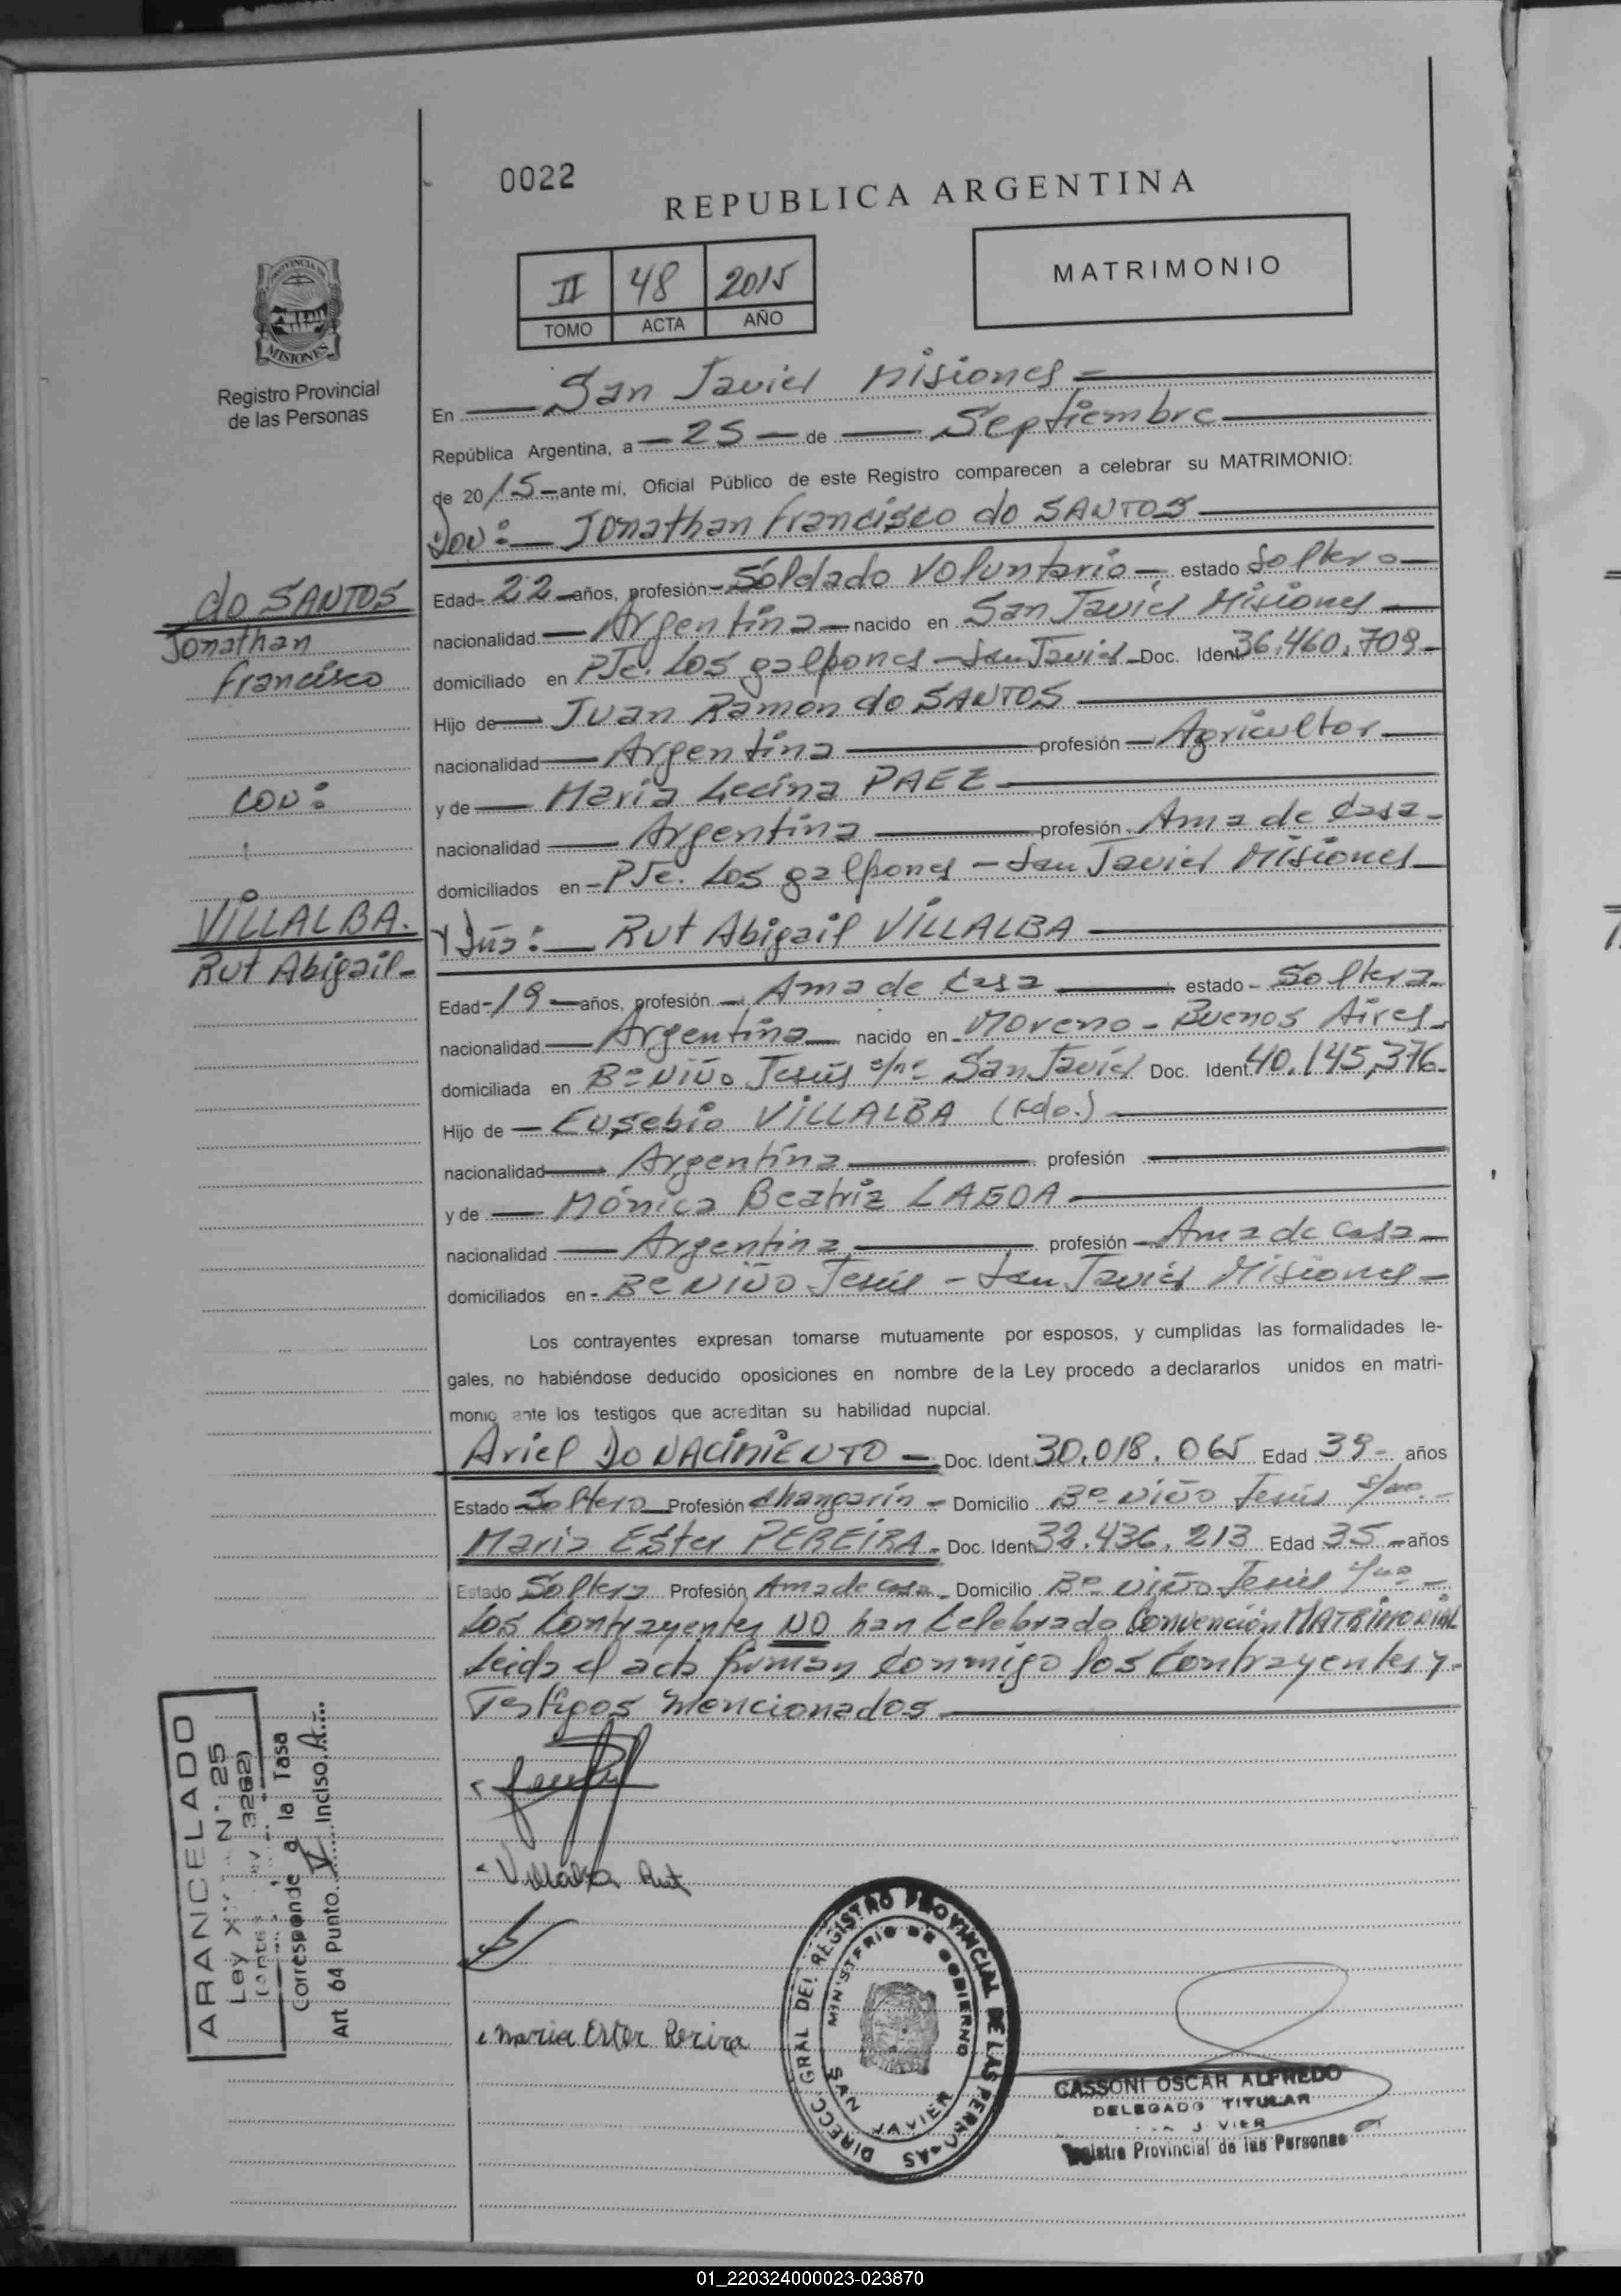 0022
REPUBLICA ARGENTINA
II 48 2015
TOMO ACTA AÑO
MATRIMONIO
PROVINCIA DE
MISIONES
Registro Provincial
de las Personas
En San Javier Misiones
República Argentina, a 25 de Septiembre
de 2015 ante mí, Oficial Público de este Registro comparecen a celebrar su MATRIMONIO:
Don: Jonathan Francisco do SANTOS
do SANTOS
Jonathan
Francisco
con:
VILLALBA.
Rut Abigail
Edad 22 años, profesión Soldado Voluntario estado Soltero
nacionalidad Argentina nacido en San Javier Misiones
domiciliado en Pje. Los galpones - San Javier Doc. Ident 36.460.709
Hijo de Juan Ramón do SANTOS
nacionalidad Argentina profesión Agricultor
y de María Lecina PAEZ
nacionalidad Argentina profesión Ama de Casa
domiciliados en Pje. Los galpones - San Javier Misiones
Y Dña: Rut Abigail VILLALBA
Edad 19 años, profesión Ama de Casa estado Soltera
nacionalidad Argentina nacido en Moreno - Buenos Aires
domiciliada en Bº Niño Jesús s/nº San Javier Doc. Ident 40.145,376
Hijo de Eusebio VILLALBA (Fdo.)
nacionalidad Argentina profesión
y de Mónica Beatriz LAGOA
nacionalidad Argentina profesión Ama de casa
domiciliados en Bº Niño Jesús - San Javier Misiones
Los contrayentes expresan tomarse mutuamente por esposos, y cumplidas las formalidades le-
gales, no habiéndose deducido oposiciones en nombre de la Ley procedo a declararlos unidos en matri-
monio ante los testigos que acreditan su habilidad nupcial.
Ariel DO NACIMIENTO Doc. Ident 30.018.065 Edad 39 años
Estado Soltero Profesión changarín Domicilio Bº Niño Jesús s/nº
María Ester PEREIRA Doc. Ident 32.436.213 Edad 35 años
Estado Soltera Profesión Ama de casa Domicilio Bº Niño Jesús s/nº
Los Contrayentes NO han Celebrado Convención MATRIMONIAL
Leida el acta firman conmigo los Contrayentes y
Testigos mencionados
Villalba Rut
maria Ester Pereira
ARANCELADO
Ley Nº 25
3262)
Corresponde a la Tasa
Art 64 Punto V Inciso A
DIRECC. GRAL DEL REGISTRO PROVINCIAL DE LAS PERSONAS
MINISTERIO DE GOBIERNO
SAN JAVIER
CASSONI OSCAR ALFREDO
DELEGADO TITULAR
Registro Provincial de las Personas
01_220324000023-023870